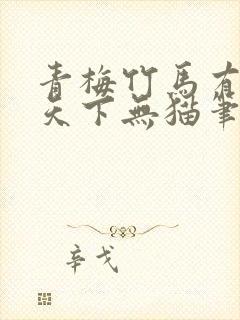 青梅竹馬有
天下無貓筆
辛戈